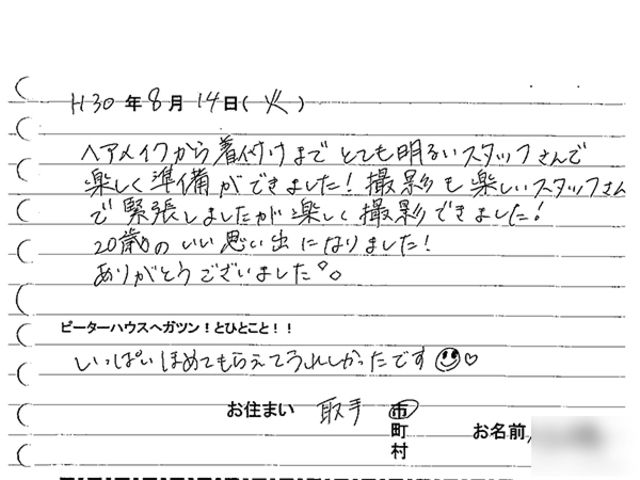 H30年8月14日(火)
ヘアメイクから着付けまでとても明るいスタッフさんで
楽しく準備ができました!撮影も楽しいスタッフさん
で緊張しましたが楽しく撮影できました!
20歳のいい思い出になりました!
ありがとうございました°。
ピーターハウスへガツン!とひとこと!!
いっぱいほめてもらえてうれしかったです☺♡
お住まい 取手 市
町
村
お名前